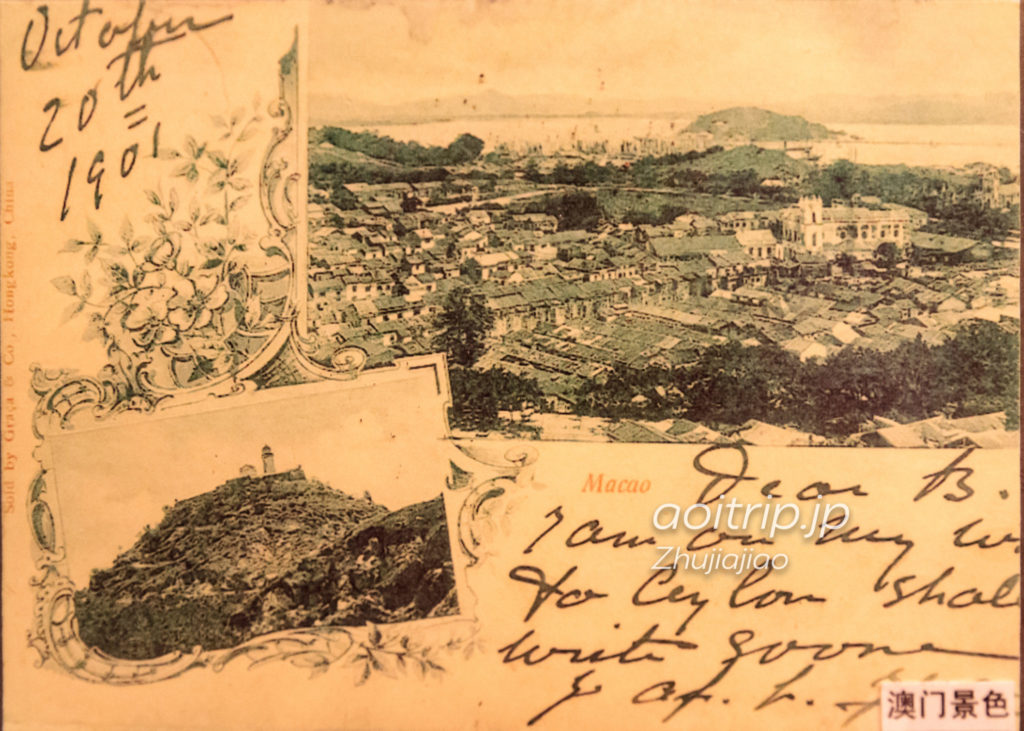 October
20th
1901
Sold by Graça & Co, Hongkong, China
Macao
Dear B.
I am on my w
to Ceylon shal
write soone
aoitrip.jp
Zhujiajiao
澳门景色